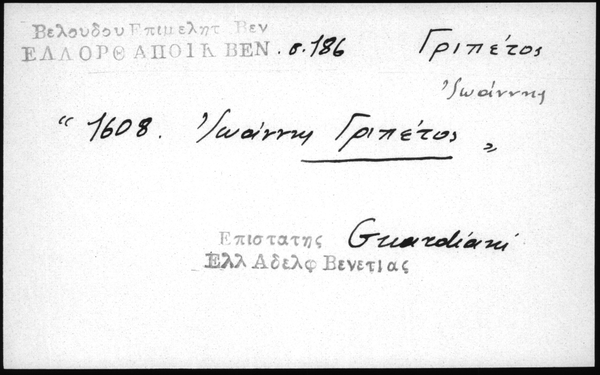 Βελουδου Επιμελητ Βεν
ΕΛΛΟΡΘ ΑΠΟΙΚ ΒΕΝ. σ. 186 Γριπέτος
Ἰωάννης
“ 1608. Ἰωάννης Γριπέτος „
Επιστατης Guardiani
Ελλ Αδελφ Βενετιας